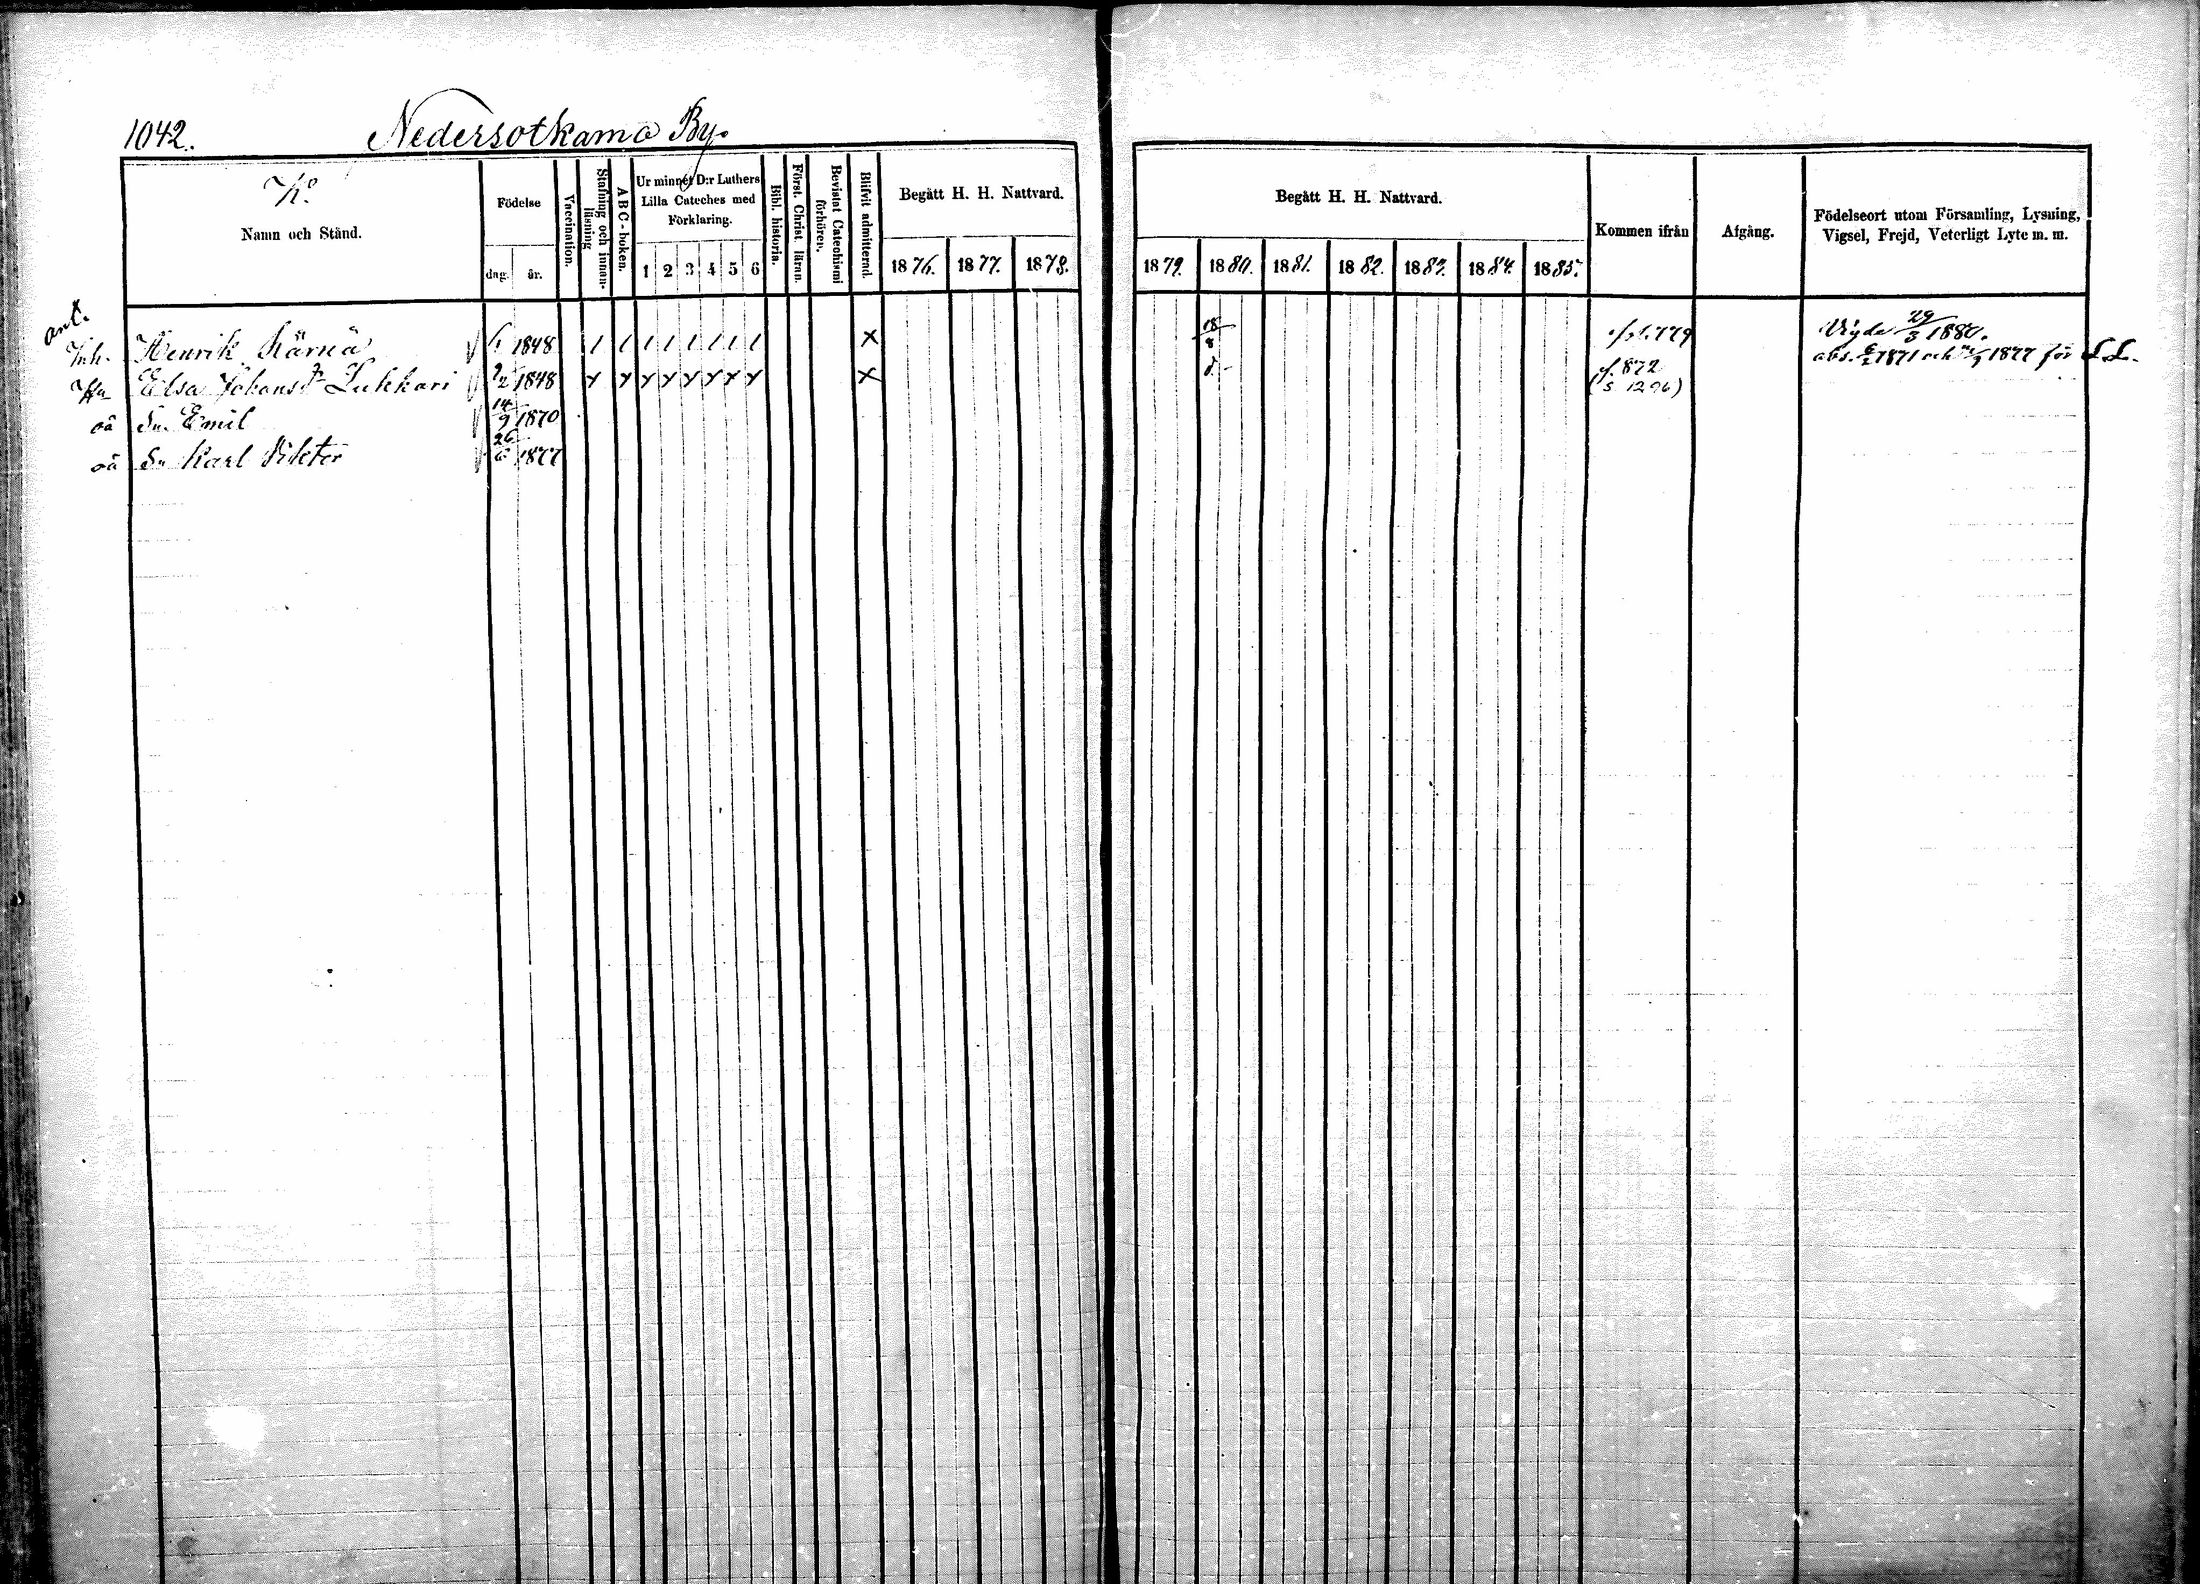 1042. Nedersotkamo By.
K.
Namn och Stånd.
Födelse
dag. år.
Vaccination.
Stafning och innan-läsning
ABC-boken.
Ur minnet D:r Luthers Lilla Cateches med Förklaring.
1 2 3 4 5 6
Bibl. historia.
Först. Christ. läran.
Bevistat Catechismi förhören.
Blifvit admitterad.
Begått H. H. Nattvard.
1876. 1877. 1878.
Begått H. H. Nattvard.
1879. 1880. 1881. 1882. 1883. 1884. 1885.
Kommen ifrån
Afgång.
Födelseort utom Församling, Lysning, Vigsel, Frejd, Veterligt Lyte m. m.
ant.
Inh. Henrik Kärnä 1848 / / / / / / / / x 18/8 779 Vigde 29/3 1880.
Hu Elsa Johansd:r Lukkari 1848 x x x x x x x x x d- 872 abs. 1871 och 1877 för L.L.
(s 1296)
oä Sn. Emil 14/9 1870
oä Sn Karl Viktor 26/6 1877